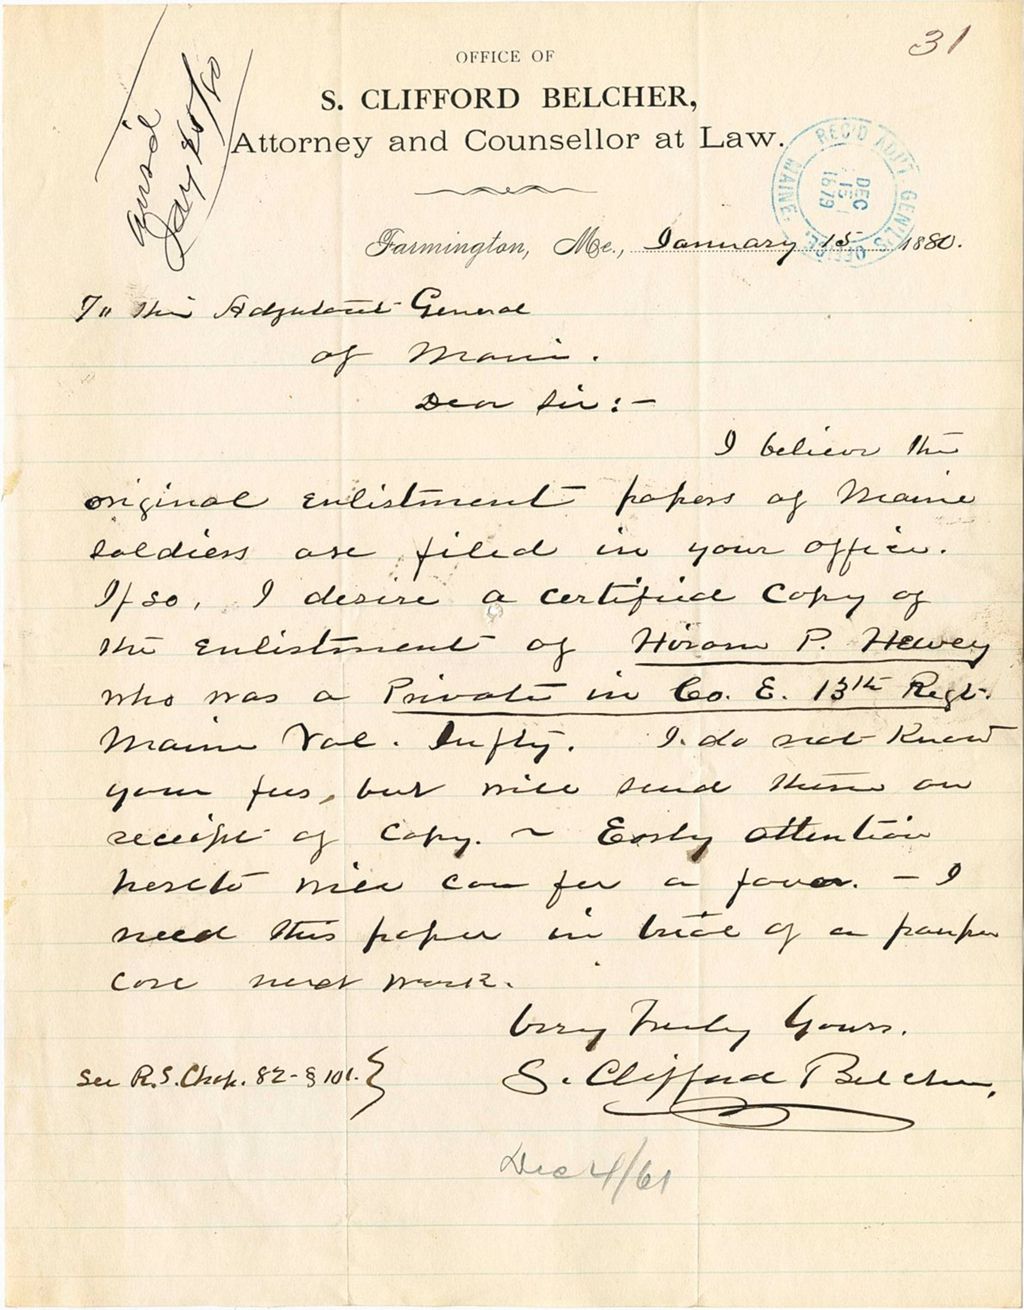 31
OFFICE OF
S. CLIFFORD BELCHER,
Attorney and Counsellor at Law.
ans'd
Jan
REC'D ADJT. GENL'S OFFICE. MAINE
DEC
15
1879
Farmington, Me., January 15 1880.
To the Adjutant General
of Maine.
Dear Sir:-
I believe the
original enlistment papers of Maine
soldiers are filed in your office.
If so, I desire a certified Copy of
the enlistment of Hiram P. Hewey
who was a Private in Co. E. 13th Regt.
Maine Vol. Infty. I do not Know
your fees, but will send them on
receipt of copy. ~ Early attention
hereto will confer a favor. - I
need this paper in trial of a pauper
case next week.
Very Truly Yours.
See R.S. Chap. 82-§101.}
S. Clifford Belcher.
Dec 4/61